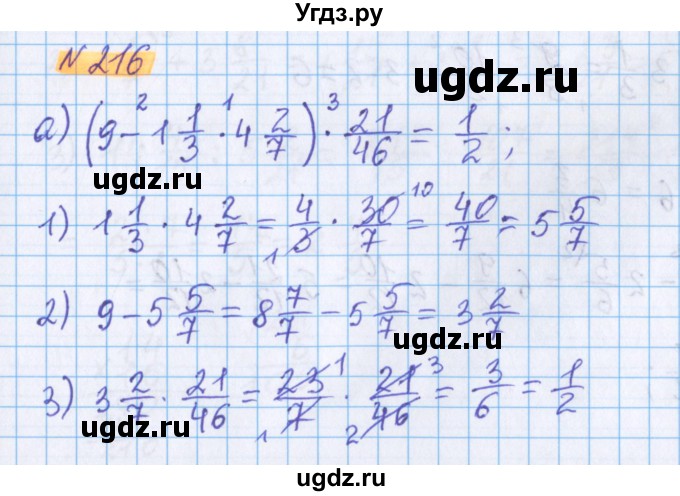 Угдз.ру
N 216
ugdz.ru
а) (9 - 1 1/3 · 4 2/7) · 21/46 = 1/2 ;
2 1 3
ugdz.ru
1) 1 1/3 · 4 2/7 = 4/3 · 30/7 = 40/7 = 5 5/7
1 10
2) 9 - 5 5/7 = 8 7/7 - 5 5/7 = 3 2/7
ugdz.ru
3) 3 2/7 · 21/46 = 23/7 · 21/46 = 3/6 = 1/2
1 1 3 2
ugdz.ru
ugdz.ru